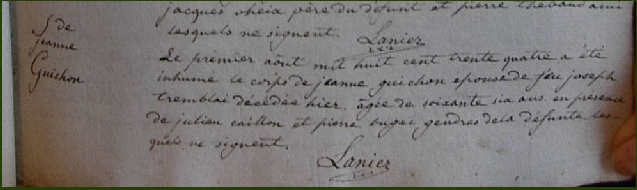 jacques oheix père du défunt et pierre thebaud ami
lesquels ne signent.
Lanier
S. de
jeanne
Guichon
Le prémier aout mil huit cent trente quatre a été
inhumé le corps de jeanne guichon epouse de feu joseph
tremblai décédée hier, agée de soixante six ans. en présence
de julien caillon et pierre bugel gendres de la défunte les-
quels ne signent.
Lanier